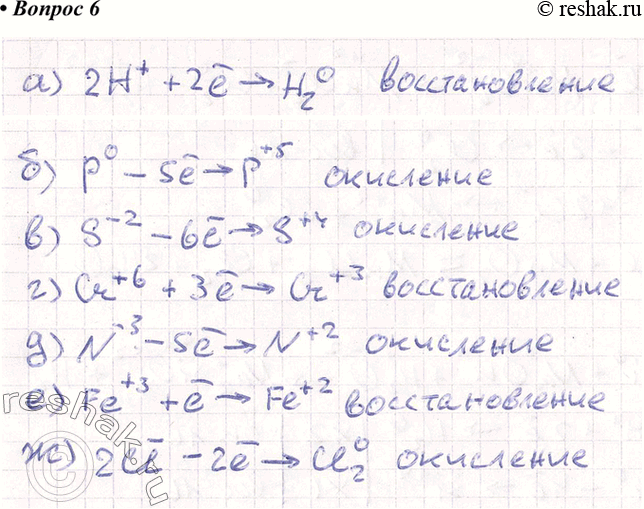 • Вопрос 6
© reshak.ru
а) 2H⁺ + 2ē → H₂⁰ восстановление
б) P⁰ − 5ē → P⁺⁵ окисление
в) S⁻² − 6ē → S⁺⁴ окисление
г) Cr⁺⁶ + 3ē → Cr⁺³ восстановление
д) N⁻³ − 5ē → N⁺² окисление
е) Fe⁺³ + ē → Fe⁺² восстановление
ж) 2Cl⁻ − 2ē → Cl₂⁰ окисление
reshak.ru